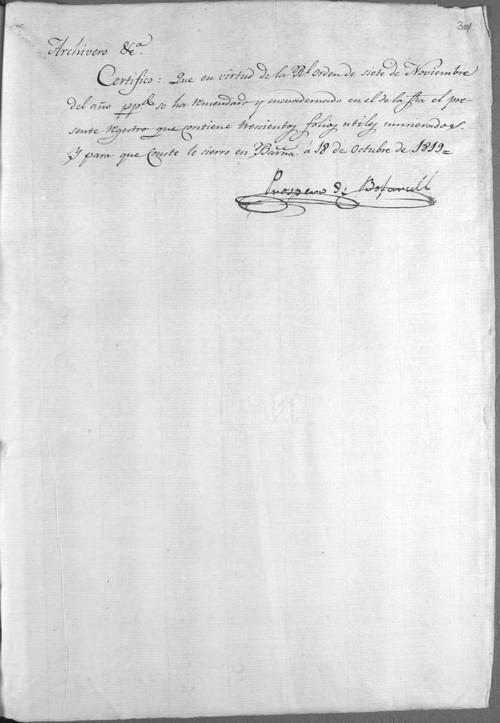 301
Archivero &c.ª
Certifico: Que en virtud de la Rl. orden de siete de Noviembre
del año ppdo. se ha remendado y encuadernado en el de la fha el pre-
sente registro que contiene trescientos folios utiles numerados.
Y para que Conste le cierro en Barna. á 18 de Octubre de 1819=
Prospero de Bofarull